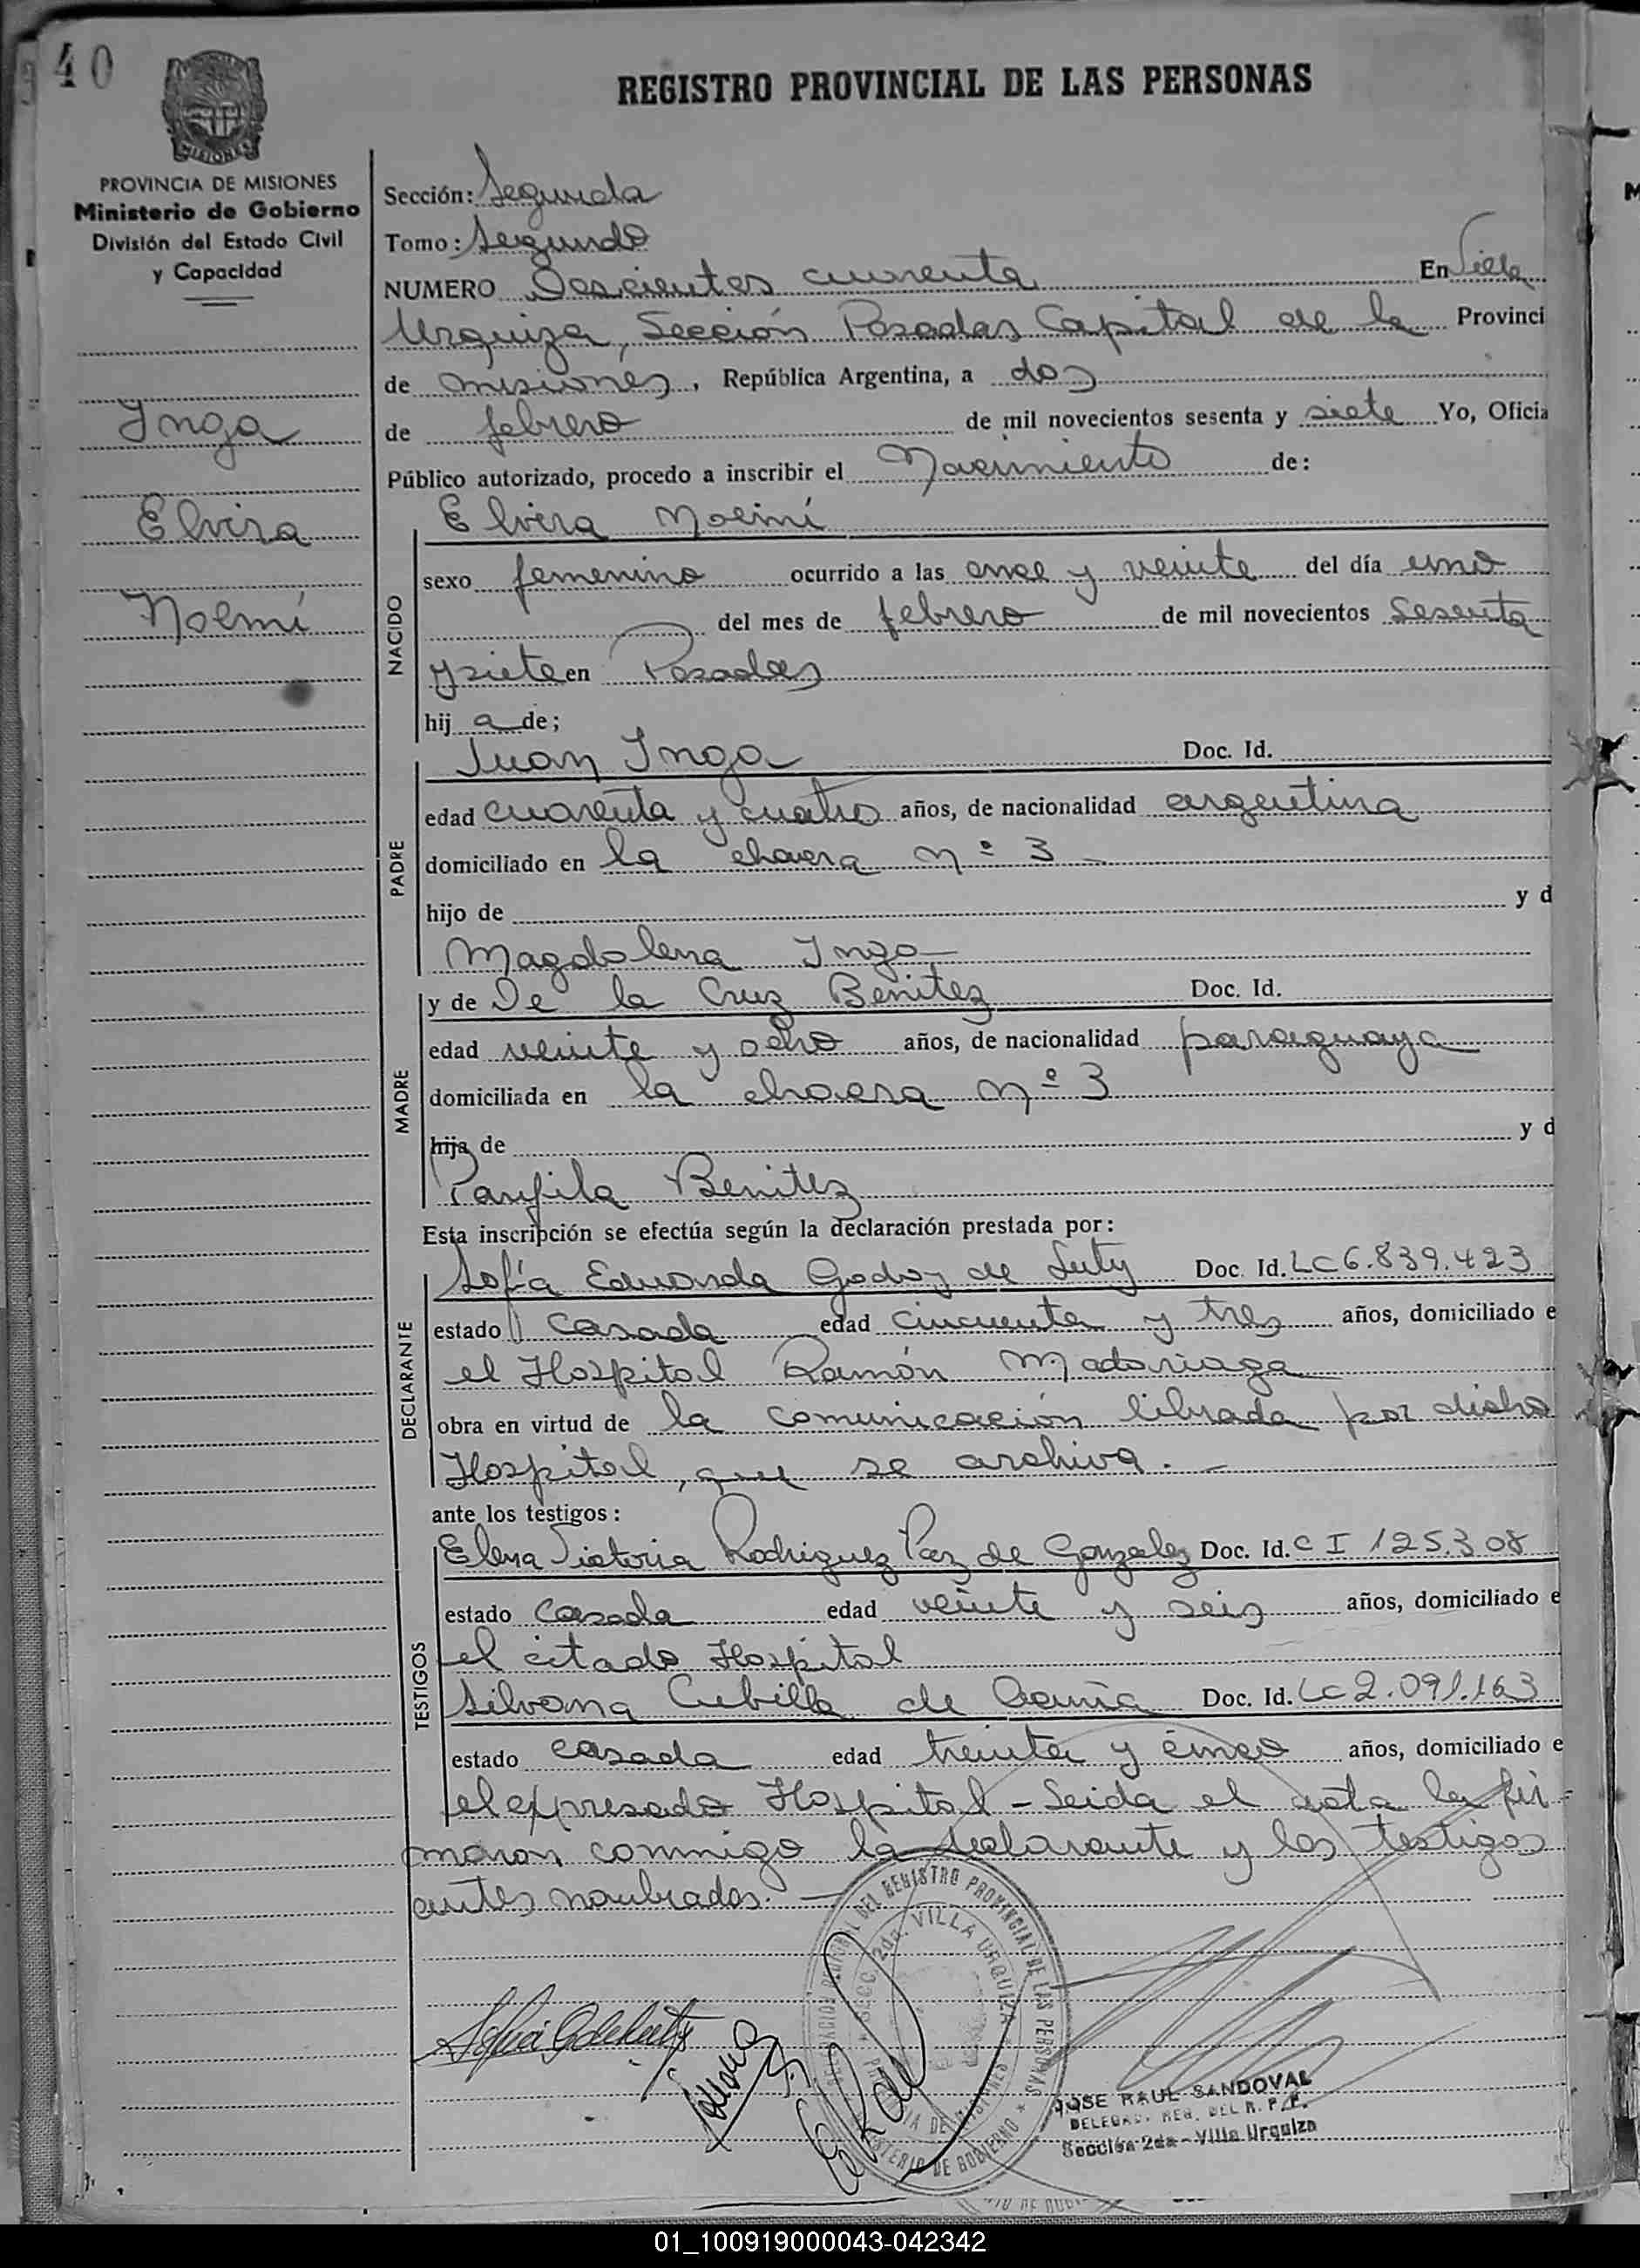 40
REGISTRO PROVINCIAL DE LAS PERSONAS
MISIONES
PROVINCIA DE MISIONES
Ministerio de Gobierno
División del Estado Civil
y Capacidad
Inga
Elvira
Noemí
Sección: Segunda
Tomo: Segundo
NUMERO Doscientos cuarenta En Villa
Urquiza, Sección Posadas Capital de la Provinci
de misiones, República Argentina, a dos
de febrero de mil novecientos sesenta y siete Yo, Oficia
Público autorizado, procedo a inscribir el Nacimiento de:
NACIDO
Elvira Noemí
sexo femenino ocurrido a las once y veinte del día uno
del mes de febrero de mil novecientos sesenta
y siete en Posadas
hij a de;
PADRE
Juan Inga Doc. Id.
edad cuarenta y cuatro años, de nacionalidad argentina
domiciliado en la chacra nº 3
hijo de y d
Magdalena Inga
MADRE
y de De la Cruz Benitez Doc. Id.
edad veinte y ocho años, de nacionalidad paraguaya
domiciliada en la chacra nº 3
hija de y d
Panfila Benitez
Esta inscripción se efectúa según la declaración prestada por:
DECLARANTE
Sofía Eduarda Godoy de Doc. Id. LC 6.839.423
estado casada edad cincuenta y tres años, domiciliado e
el Hospital Ramón Madariaga
obra en virtud de la comunicación librada por dicho
Hospital, que se archiva.-
ante los testigos:
TESTIGOS
Elena Victoria Rodriguez Paz de Gonzalez Doc. Id. C I 125.308
estado casada edad veinte y seis años, domiciliado e
el citado Hospital
Silvana Cubilla de Doc. Id. LC 2.091.163
estado casada edad treinta y cinco años, domiciliado e
el expresado Hospital - Leida el acta la fir-
maron conmigo la declarante y los testigos
antes nombrados.-
DEL REGISTRO PROVINCIAL DE LAS PERSONAS
SECC. 2da. VILLA URQUIZA
MINISTERIO DE GOBIERNO
JOSE RAUL SANDOVAL
DELEGAD. REG. DEL R. P. P.
Sección 2da - Villa Urquiza
01_100919000043-042342